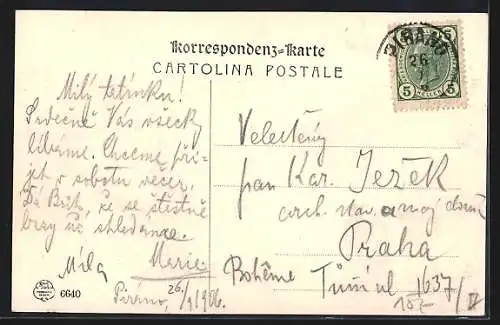 Korrespondenz=Karte
CARTOLINA POSTALE
PIRANO
26
5 5
Milý tatínku!
Srdečně Vás všecky
líbáme. Chceme při-
jet v sobotu večer.
Dá Bůh, že se šťastně
brzy na shledanou.
Míla Marie
Piráno, 26/1906.
Velectěný
pan Kar. Ježek
arch. stav. a maj. domu
Praha
Bohême Tůmul 1637/II
6640